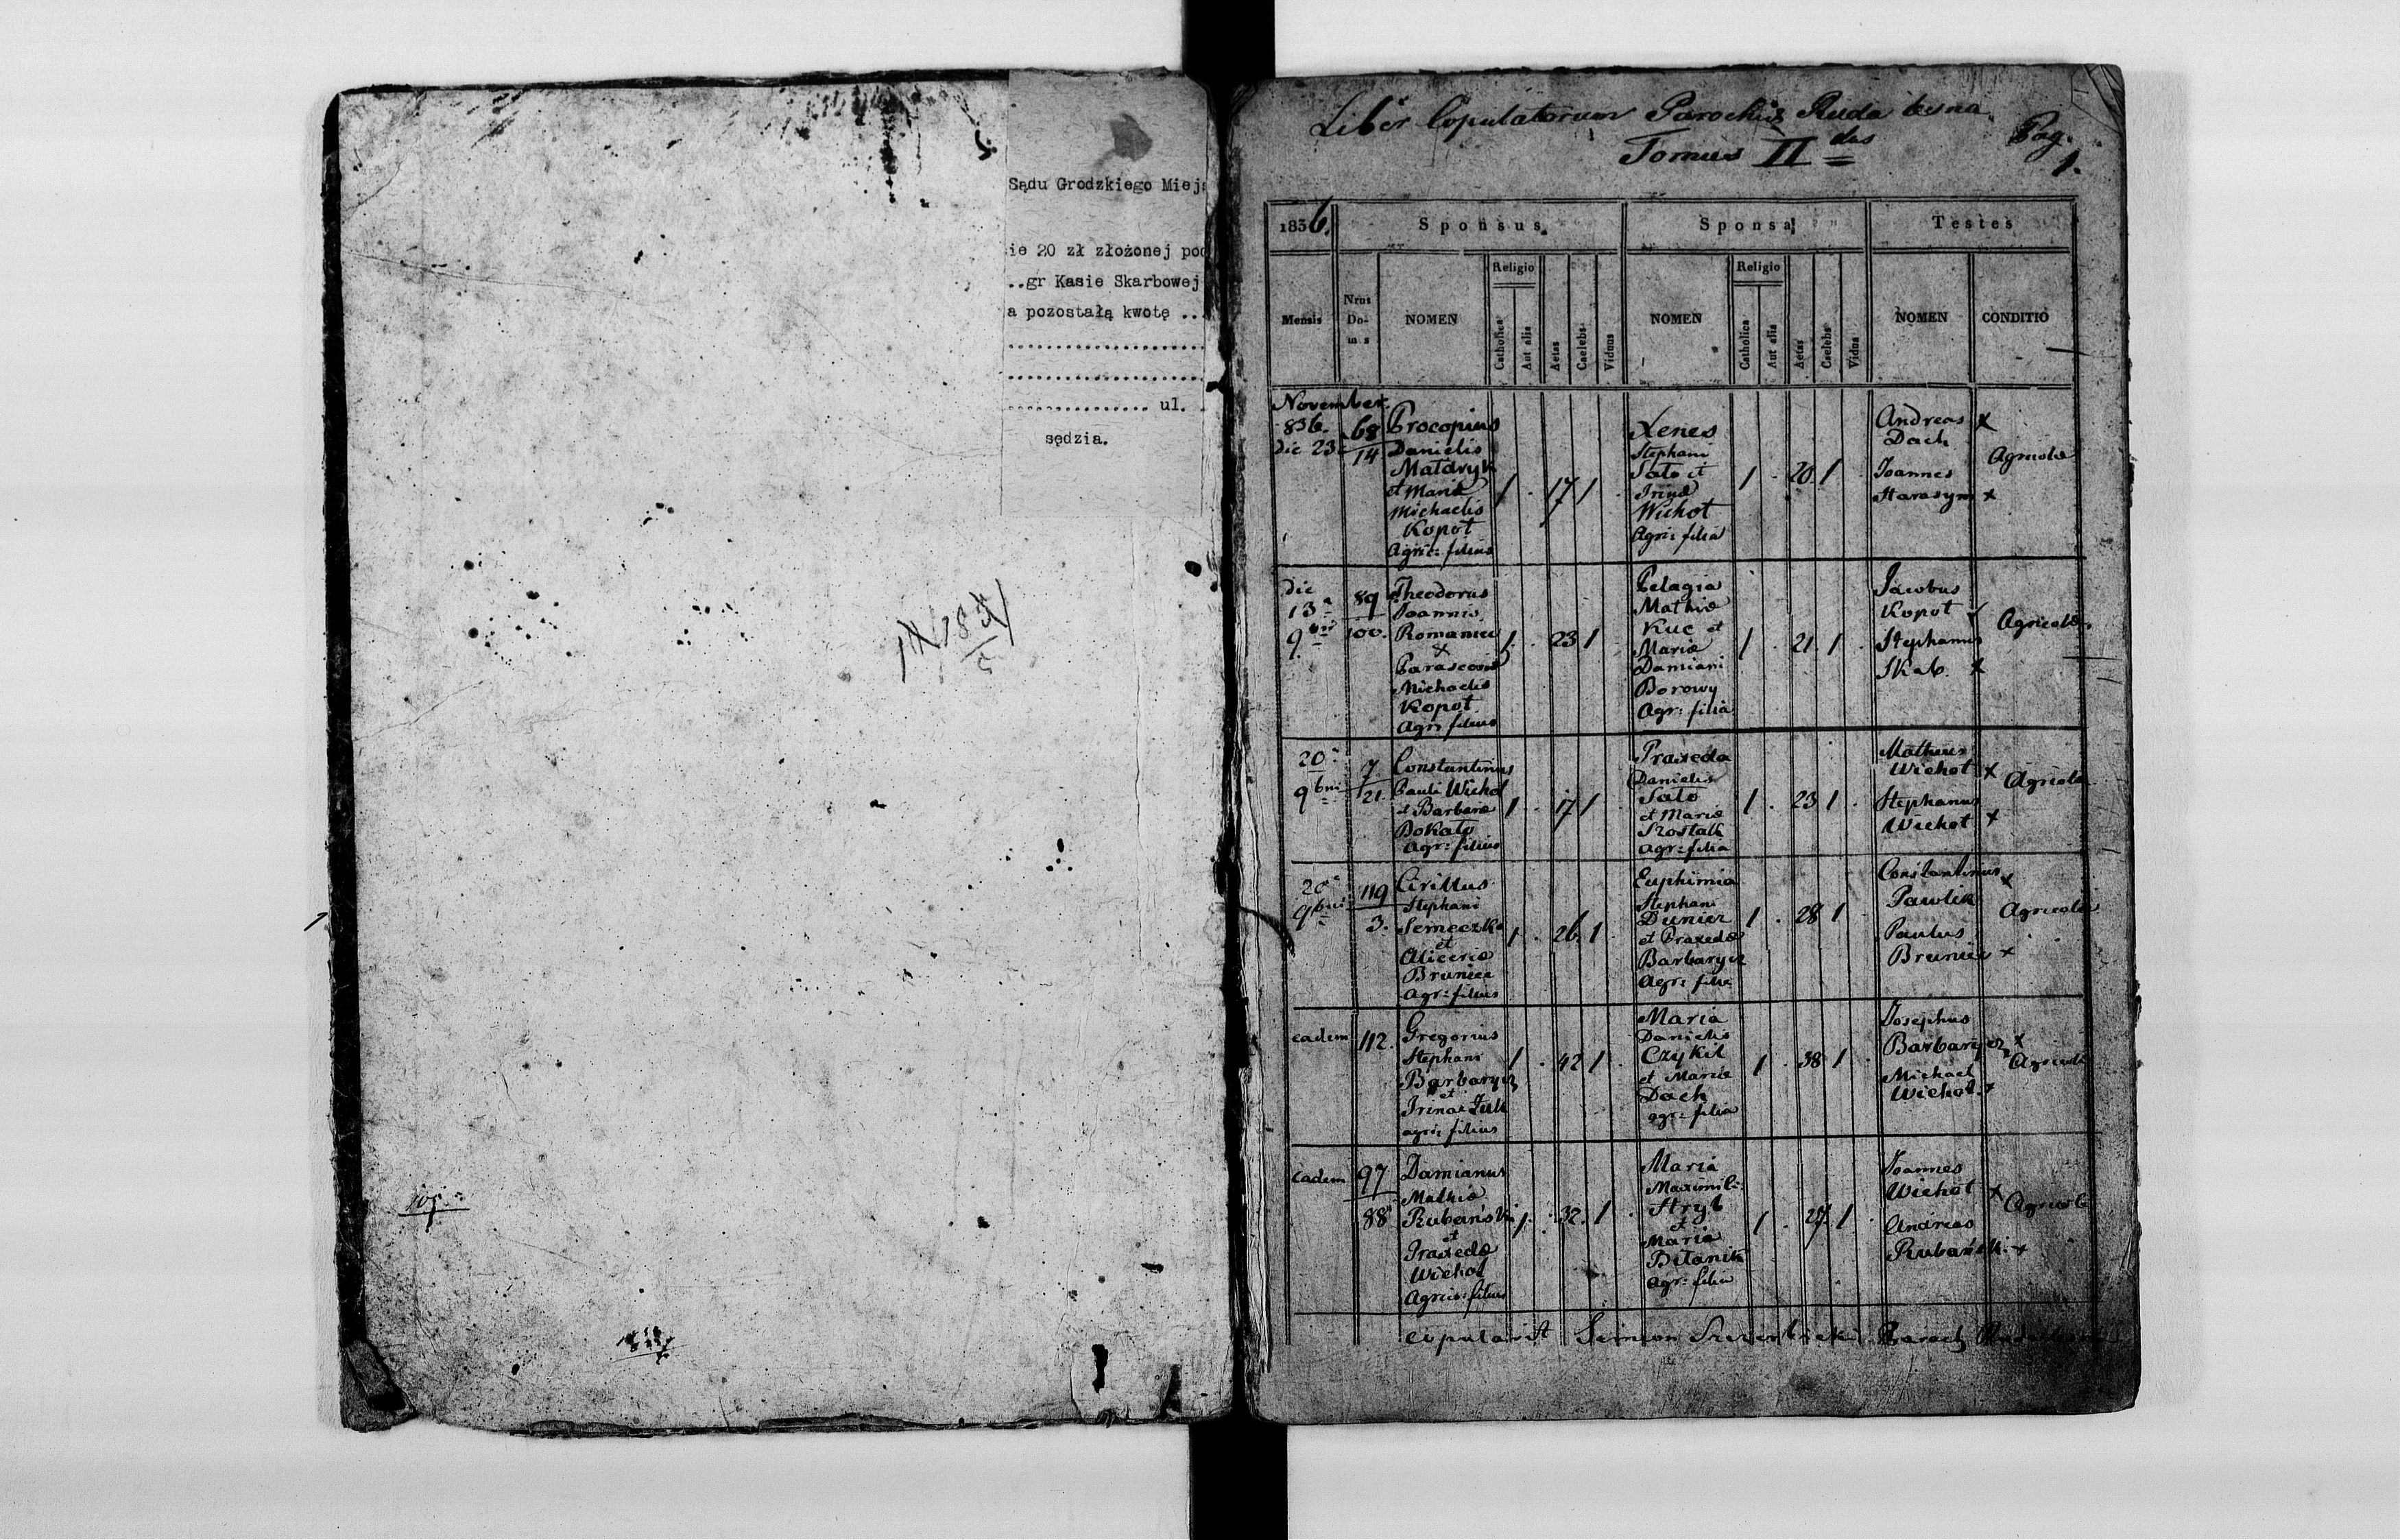 Sądu Grodzkiego Miejs
ie 20 zł złożonej pod
..gr Kasie Skarbowej
a pozostałą kwotę ...
......................
......................
............... ul. .
sędzia.
Liber Copulatorum Parochiæ Ruda
Tomus II dus
Pag. 1.
1836. Sponsus Sponsa Testes
Mensis Nrus Domus NOMEN Religio Catholica Aut alia Aetas Caelebs Viduus NOMEN Religio Catholica Aut alia Aetas Caelebs Vidua NOMEN CONDITIO
November
836.
die 23
68
14
Procopius
Danielis
Maldryk
et Mariæ
Michaelis
Kopot
Agric: filius
1 . 17 1
Xenes
Stephani
Sało et
Irinæ
Wichot
Agri: filia
1 . 20 1
Andreas x
Dach
Joannes
Harasym x
Agricolæ
die
13a
9bris
89
100.
Theodorus
Joannis
Romaniec
x
Parasceviæ
Michaelis
Kopot
Agri filius
1 . 23 1
Pelagia
Mathiæ
Kuc et
Mariæ
Damiani
Borowy
Agr: filia
1 . 21 1
Jacobus
Kopot
Stephanus
Skab x
Agricolæ
20a
9bris
7
21
Constantinus
Pauli Wichot
et Barbaræ
Dokało
Agr: filius
1 . 17 1
Praxeda
Danielis
Sało
et Mariæ
Szostak
Agr: filia
1 . 23 1
Matheus
Wichot x
Stephanus
Wichot x
Agricolæ
20a
9bris
119
3.
Cirillus
Stephani
Semeczko
et
Gliceriæ
Bruniec
Agr: filius
1 . 26 1
Euphimia
Stephani
Duniec
et Praxedæ
Barbarycz
Agr: filia
1 . 28 1
Constantinus x
Pawlik
Paulus
Bruniec x
Agricolæ
eadem
112.
Gregorius
Stephani
Barbarycz
et
Irinæ Żuk
agri: filius
1 . 42 1
Maria
Danielis
Czykil
et Mariæ
Dach
agr: filia
1 . 38 1
Josephus
Barbarycz x
Michael
Wichot x
Agricolæ
eadem
97
88
Damianus
Mathiæ
Rubański
et
Praxedæ
Wichot
Agric: filius
1 . 32. 1
Maria
Maximili:
Hryb
et
Mariæ
Bitanik
Agr: filia
1 . 27 1
Joannes
Wichot x
Andreas
Rubański x
Agricolæ
copulavit Simeon Paroch